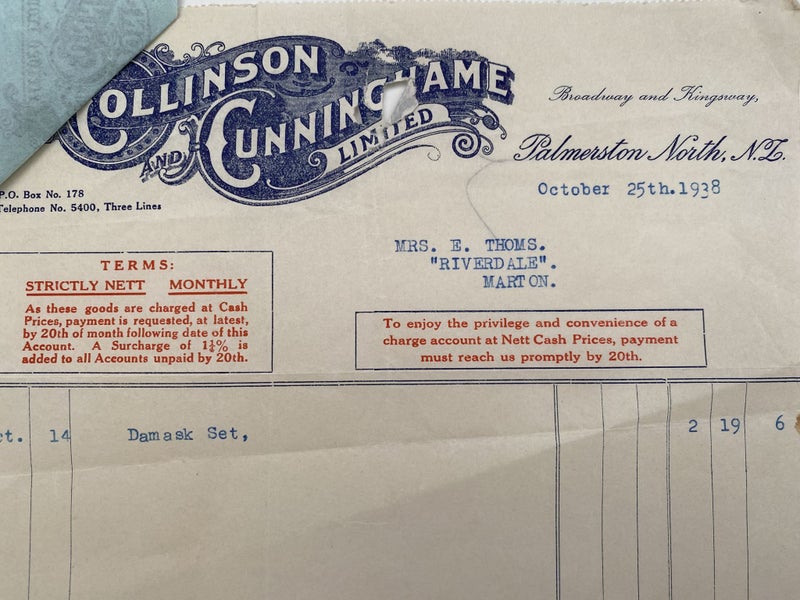 COLLINSON
AND CUNNINGHAME
LIMITED
Broadway and Kingsway,
Palmerston North, N.Z.
P.O. Box No. 178
Telephone No. 5400, Three Lines
October 25th.1938
MRS. E. THOMS.
"RIVERDALE".
MARTON.
TERMS:
STRICTLY NETT MONTHLY
As these goods are charged at Cash
Prices, payment is requested, at latest,
by 20th of month following date of this
Account. A Surcharge of 1¼% is
added to all Accounts unpaid by 20th.
To enjoy the privilege and convenience of a
charge account at Nett Cash Prices, payment
must reach us promptly by 20th.
ct. 14 Damask Set, 2 19 6